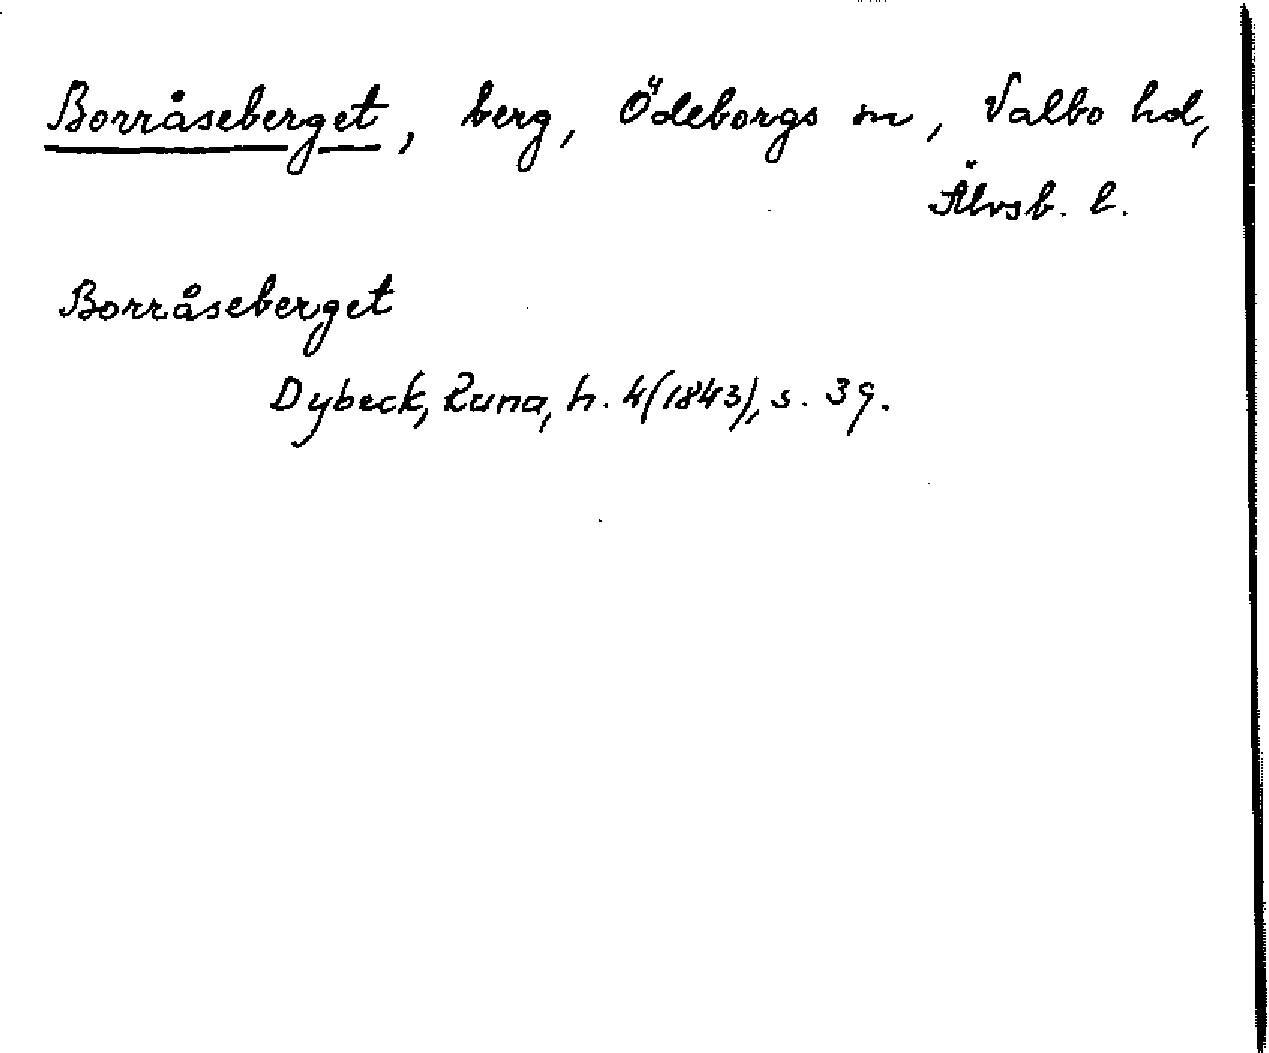 Borråseberget, berg, Ödeborgs sn, Valbo hd,
Älvsb. l.
Borråseberget
Dybeck, Runa, h. 4(1843), s. 39.